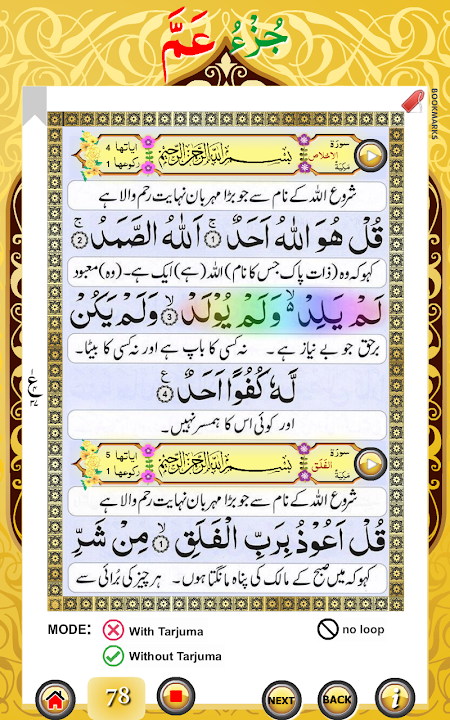 جُزْءُ عَمَّ
BOOKMARKS
سورة الاخلاص مَكِيَّة بِسْمِ اللهِ الرَّحْمٰنِ الرَّحِيْمِ اٰیاتها 4 رکوعها 1
شروع اللہ کے نام سے جو بڑا مہربان نہایت رحم والا ہے
قُلْ هُوَ اللّٰهُ اَحَدٌ ۚ ﴿1﴾ اَللّٰهُ الصَّمَدُ ۚ ﴿2﴾
کہو کہ وہ (ذات پاک جس کا نام) اللہ (ہے) ایک ہے۔ (وہ) معبود
لَمْ يَلِدْ ۙ۬ وَلَمْ يُوْلَدْ ۙ ﴿3﴾ وَلَمْ يَكُنْ
برحق جو بے نیاز ہے۔ نہ کسی کا باپ ہے اور نہ کسی کا بیٹا۔
لَّهٗ كُفُوًا اَحَدٌ ﴿4﴾
اور کوئی اس کا ہمسر نہیں۔
سورة الفلق مَكِيَّة بِسْمِ اللهِ الرَّحْمٰنِ الرَّحِيْمِ اٰیاتها 5 رکوعها 1
شروع اللہ کے نام سے جو بڑا مہربان نہایت رحم والا ہے
قُلْ اَعُوْذُ بِرَبِّ الْفَلَقِ ۙ ﴿1﴾ مِنْ شَرِّ
کہو کہ میں صبح کے مالک کی پناہ مانگتا ہوں۔ ہر چیز کی بُرائی سے
MODE: With Tarjuma no loop
Without Tarjuma
78 NEXT BACK i